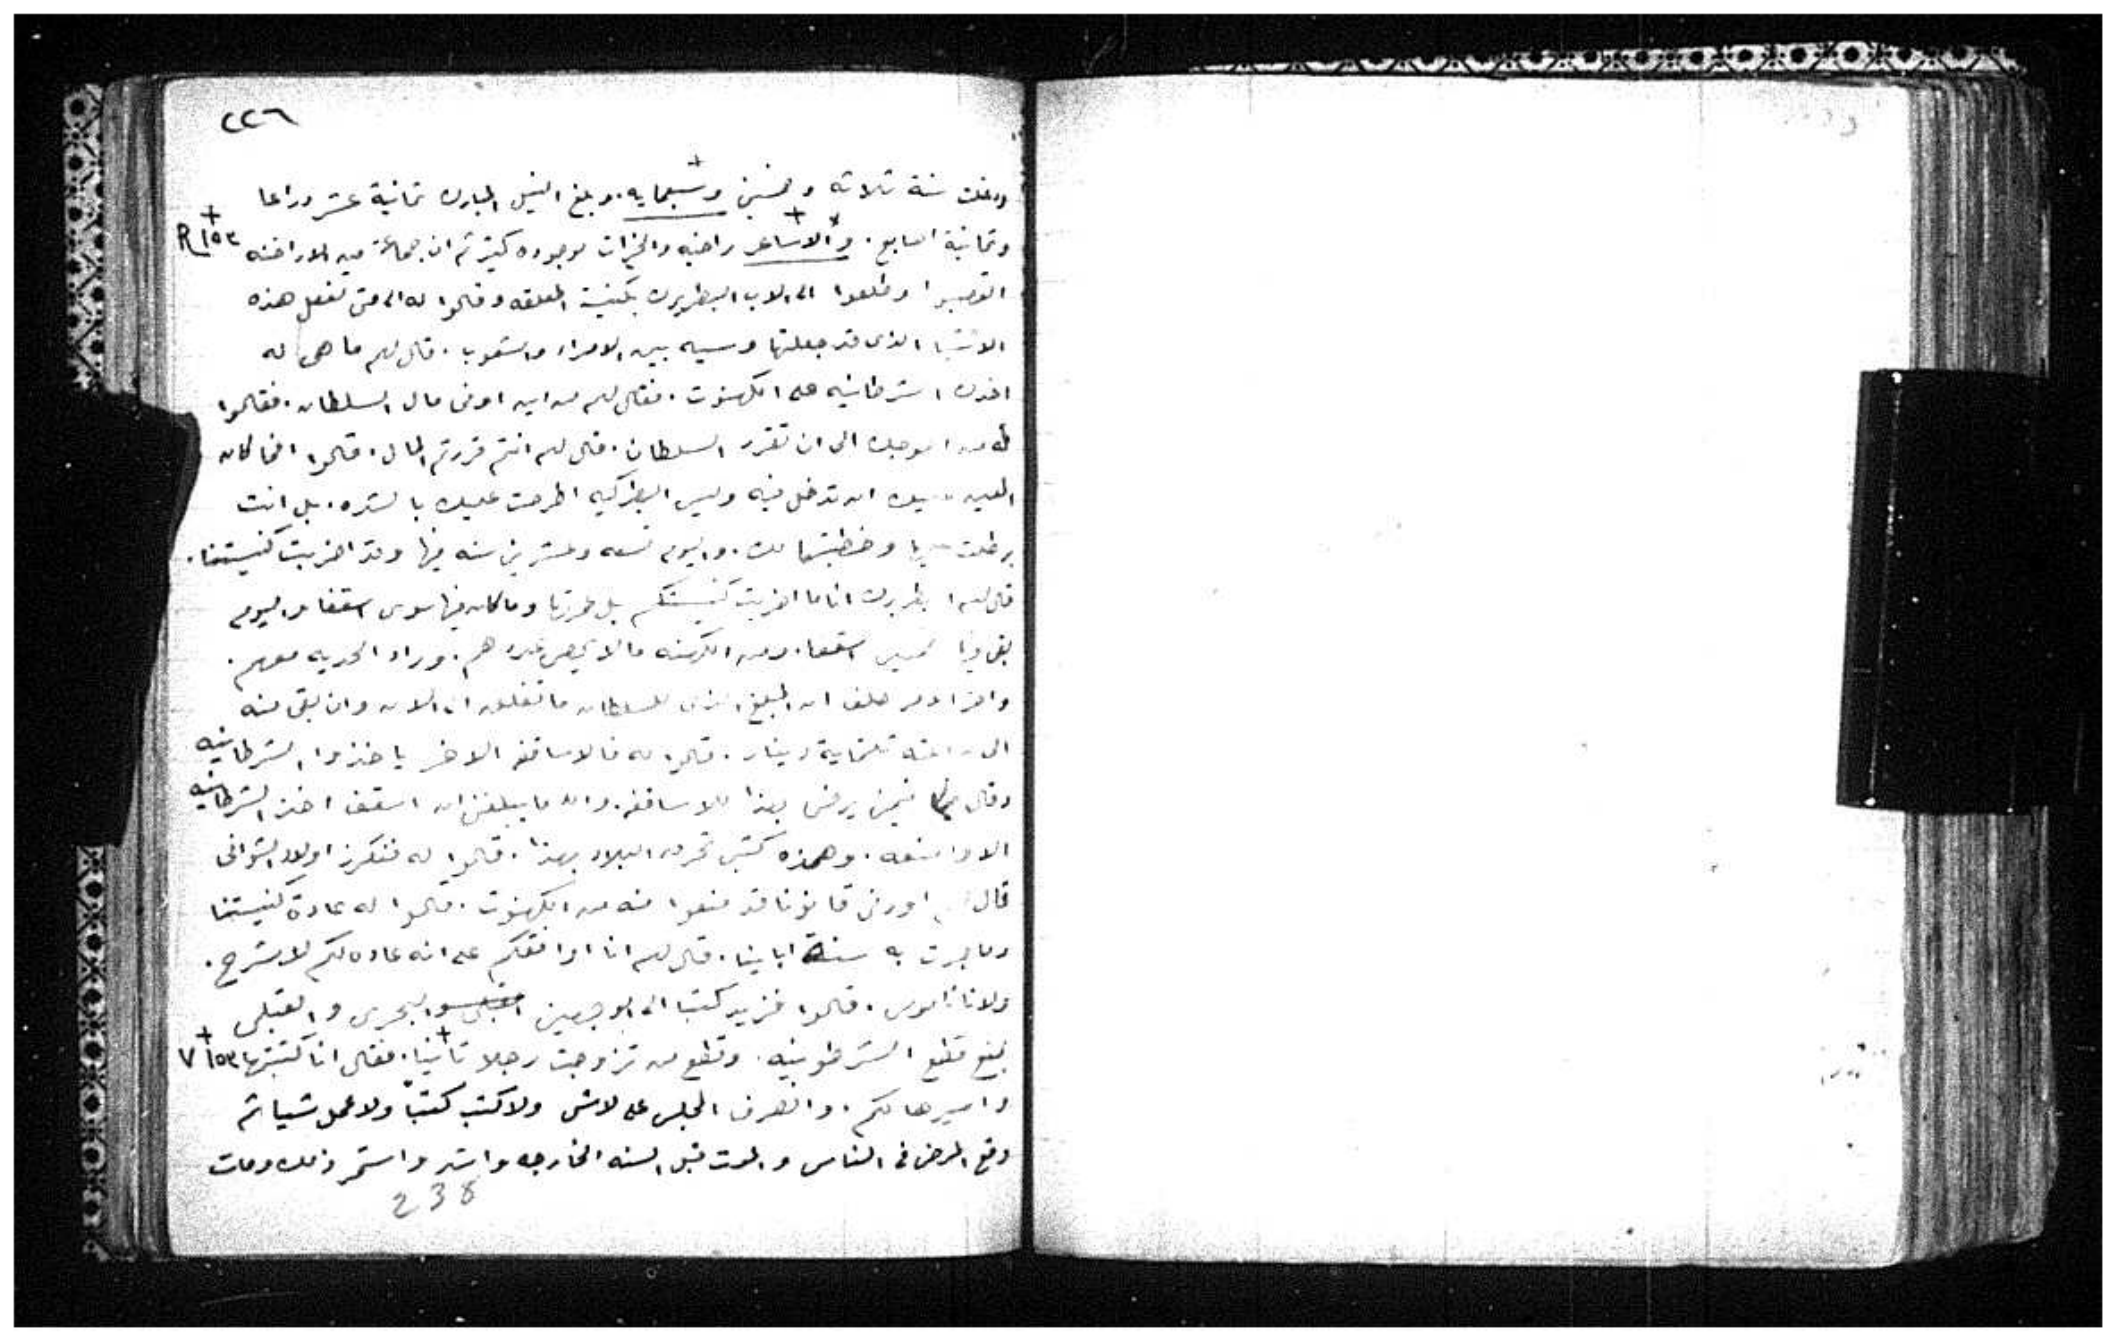 ٢٢٦
ودخلت سنة ثلاثه وخمسين وسبعمايه. وبلغ النيل المبارك ثمانية عشر دراعا
R ١٥٣
وثمانية اصابع. والاسـاعر راخيه والخيرات موجوده كثير ثم ان جماعة من الاراخنه
وطلعوا الى الاب البطريرك بكنيسة المعلقه وقالوا له الى متى تفعل هذه
الاشيا الذى قد جعلتها وسيه بين الامراء والشعوب. قال لهم ما هى له
اخدك الشرطانيه على الكهنوت. فقال لهم من اين اوفى مال السلطان. فقالوا
له من الى ان تقرر السلطان. قال لهم انتم قررتم المال. قالوا افما كان
ان تدخل فيه وليس البطركيه اطرحت عليك بل انت
وخطبتها لك. واليوم تسعه وعشرين سنه فيها وقد اخربت كنيستنا.
قال لهم البطريرك انا ما اخربت كنيستكم بل عمرتها وما كان فيها سوى اسقفا واليوم
بقى فيها خمسين اسقفا. ومن الكهنه ما لا يحصى عددهم. وراد الحديه معهم.
واخر الامر حلف ان المبلغ الذى للسلطان ما تغلق الى الان وان بقى منه
الى تلتماية دينار. قالوا له فالاساقفه الاخر ياخذوا الشرطانيه
وقال فيمن يرضى بهذا للاساقفه. والله ما يبلغنى ان اسقف اخذ الشرطانيه
الا وامنعه. وهذه كتبى تحرم البلاد بهذا. قالوا له فتكرز اولاد الثوانى
قال اورنى قانونا قد منعوا منه من الكهنوت. قالوا له عادة كنيستنا
وما جرت به سنة اباينا. قال لهم انا اوافقكم على انه عاده لكم لا شرح.
ولا ناموس. قالوا فزيد كتبا الى الوجهين البحرى والقبلى
بمنع قطع الشرطونيه. وقطع من تزوجت رجلا تانيا. فقال انا كتبتها
V ١٥٣
واسيرها لكم. وانصرف المجلس على لاش ولا كتب كتبا ولا عمل شيا ثم
وقع المرض فى الناس والموت قبل السنه الخارجه واشتد واستمر ذلك ومات
238